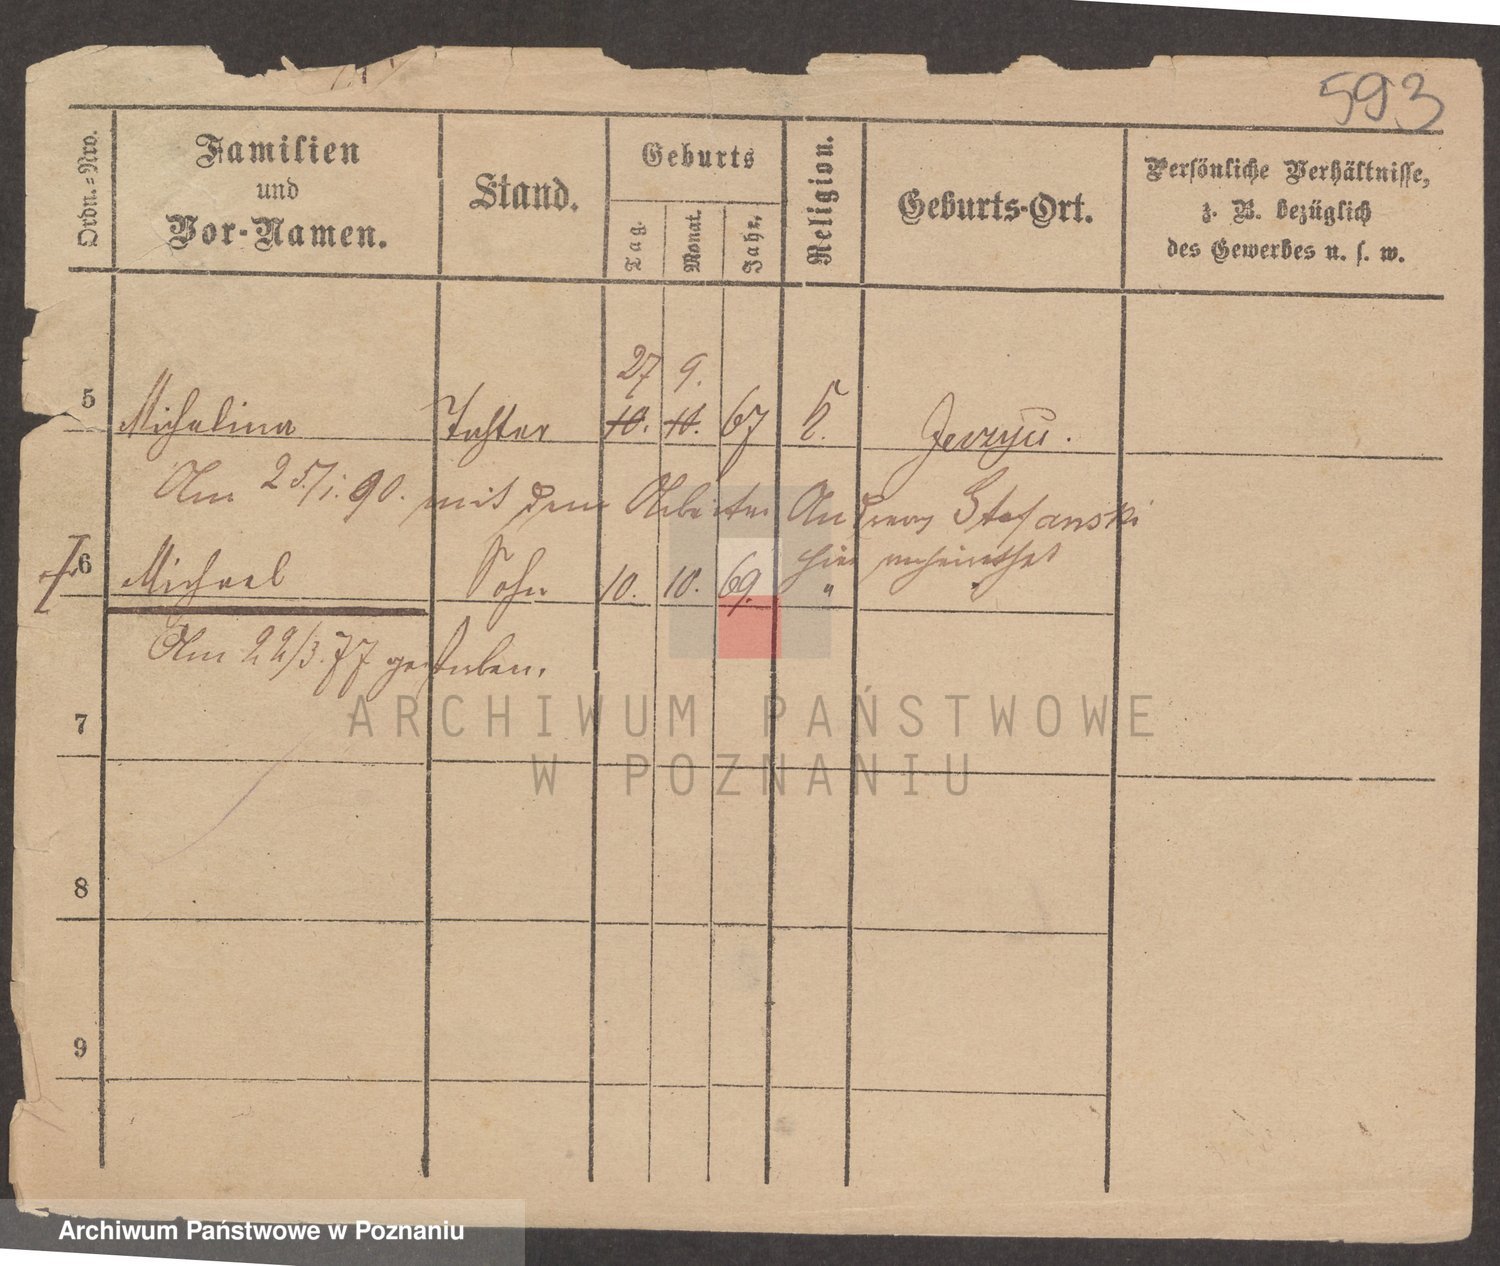 593
Ordn.=Nro.
Familien
und
Vor-Namen.
Stand.
Geburts
Tag.
Monat.
Jahr.
Religion.
Geburts-Ort.
Persönliche Verhältnisse,
z. B. bezüglich
des Gewerbes u. s. w.
27 9.
5 Michalina Tochter 10. 11. 67 k. Jerzyce.
Am 25/1. 90. mit dem Arbeiter Andreas Stefanski
hier verheirathet
6 Michael Sohn 10. 10. 69. " "
Am 22/3. 77 gestorben.
7
8
9
ARCHIWUM PAŃSTWOWE
W POZNANIU
Archiwum Państwowe w Poznaniu